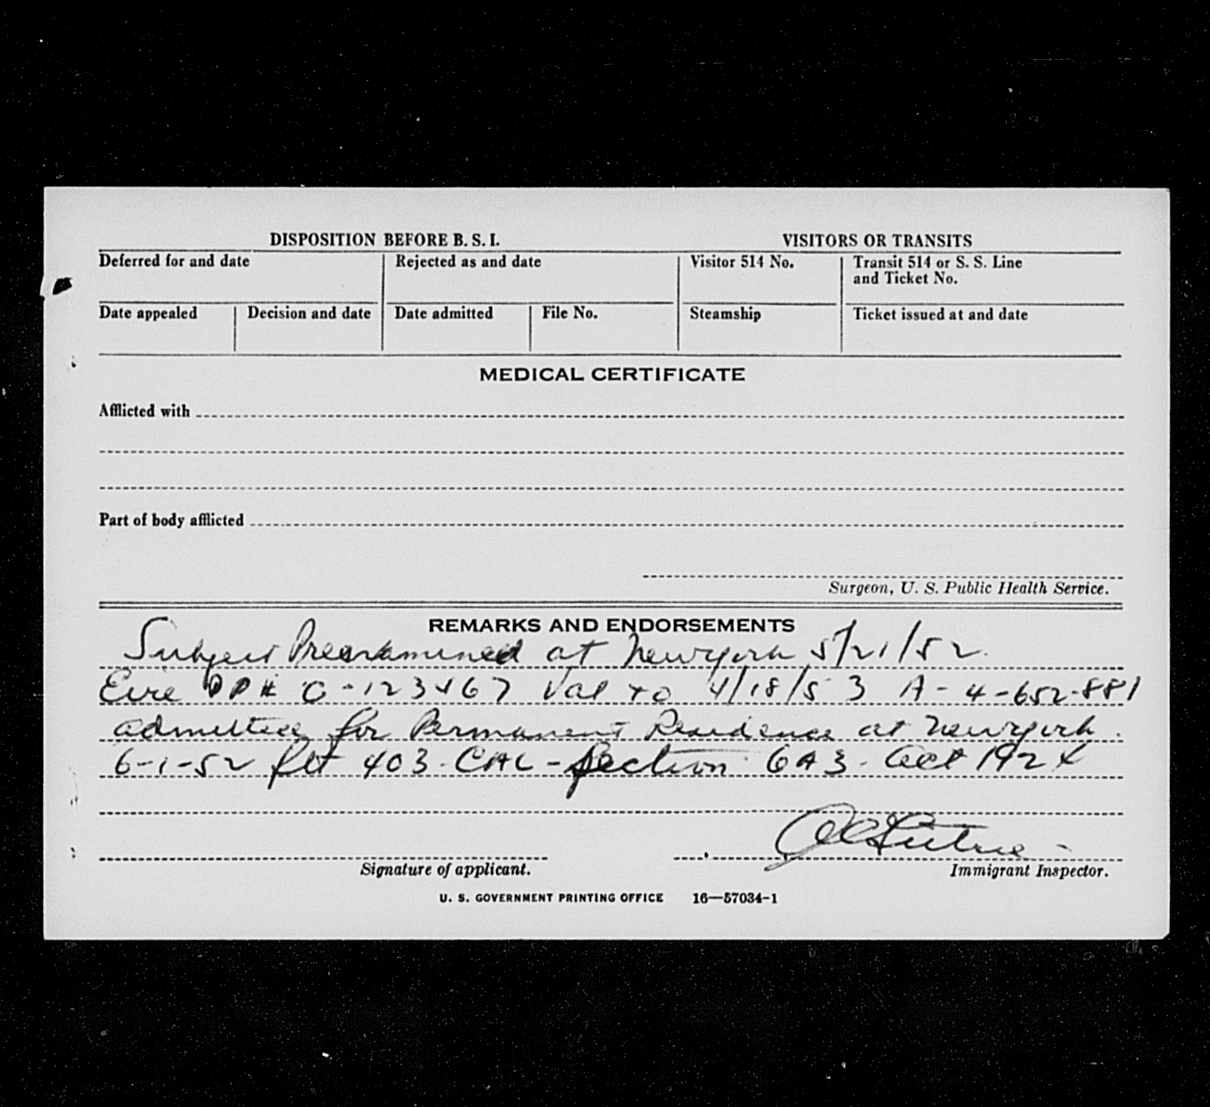 DISPOSITION BEFORE B. S. I.
VISITORS OR TRANSITS
Deferred for and date
Rejected as and date
Visitor 514 No.
Transit 514 or S. S. Line
and Ticket No.
Date appealed
Decision and date
Date admitted
File No.
Steamship
Ticket issued at and date
MEDICAL CERTIFICATE
Afflicted with
Part of body afflicted
Surgeon, U. S. Public Health Service.
REMARKS AND ENDORSEMENTS
Subject Preexamined at New york 5/21/52.
Eire PP# C-123467 Val to 4/18/53 A-4-652-881
admitted for Permanent Residence at New york.
6-1-52 flt 403. CAL-Section 6A3. Act 1924
Signature of applicant.
Immigrant Inspector.
U. S. GOVERNMENT PRINTING OFFICE 16—57034-1